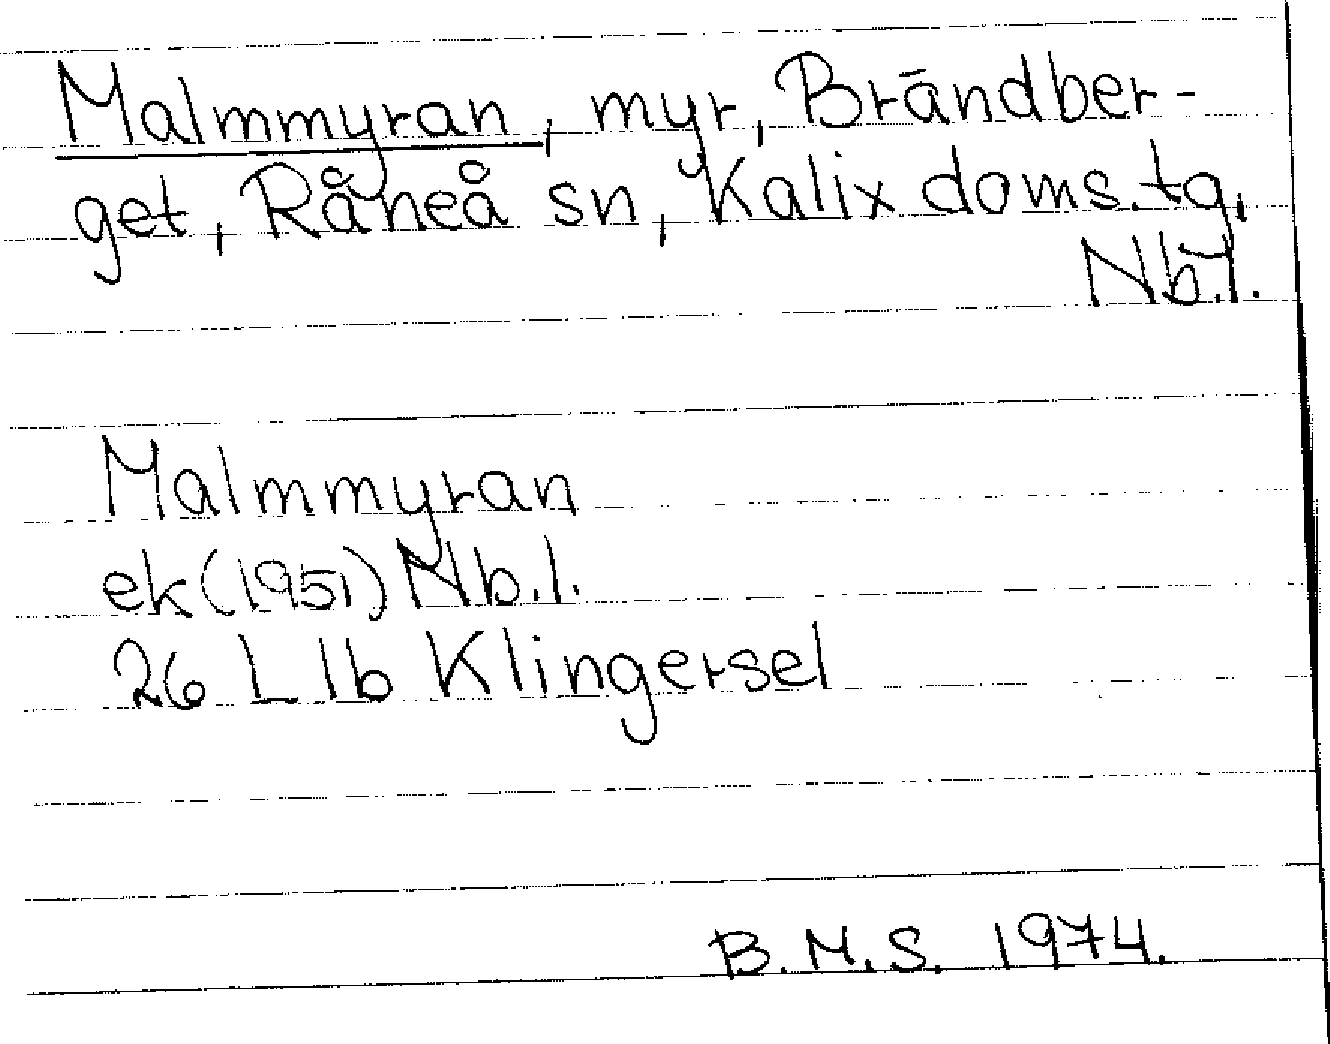 Malmmyran, myr, Brändber-
get, Råneå sn, Kalix doms.tg,
Nb.l.
Malmmyran
ek (1951) Nb.l.
26 L 1b Klingersel
B.M.S. 1974.